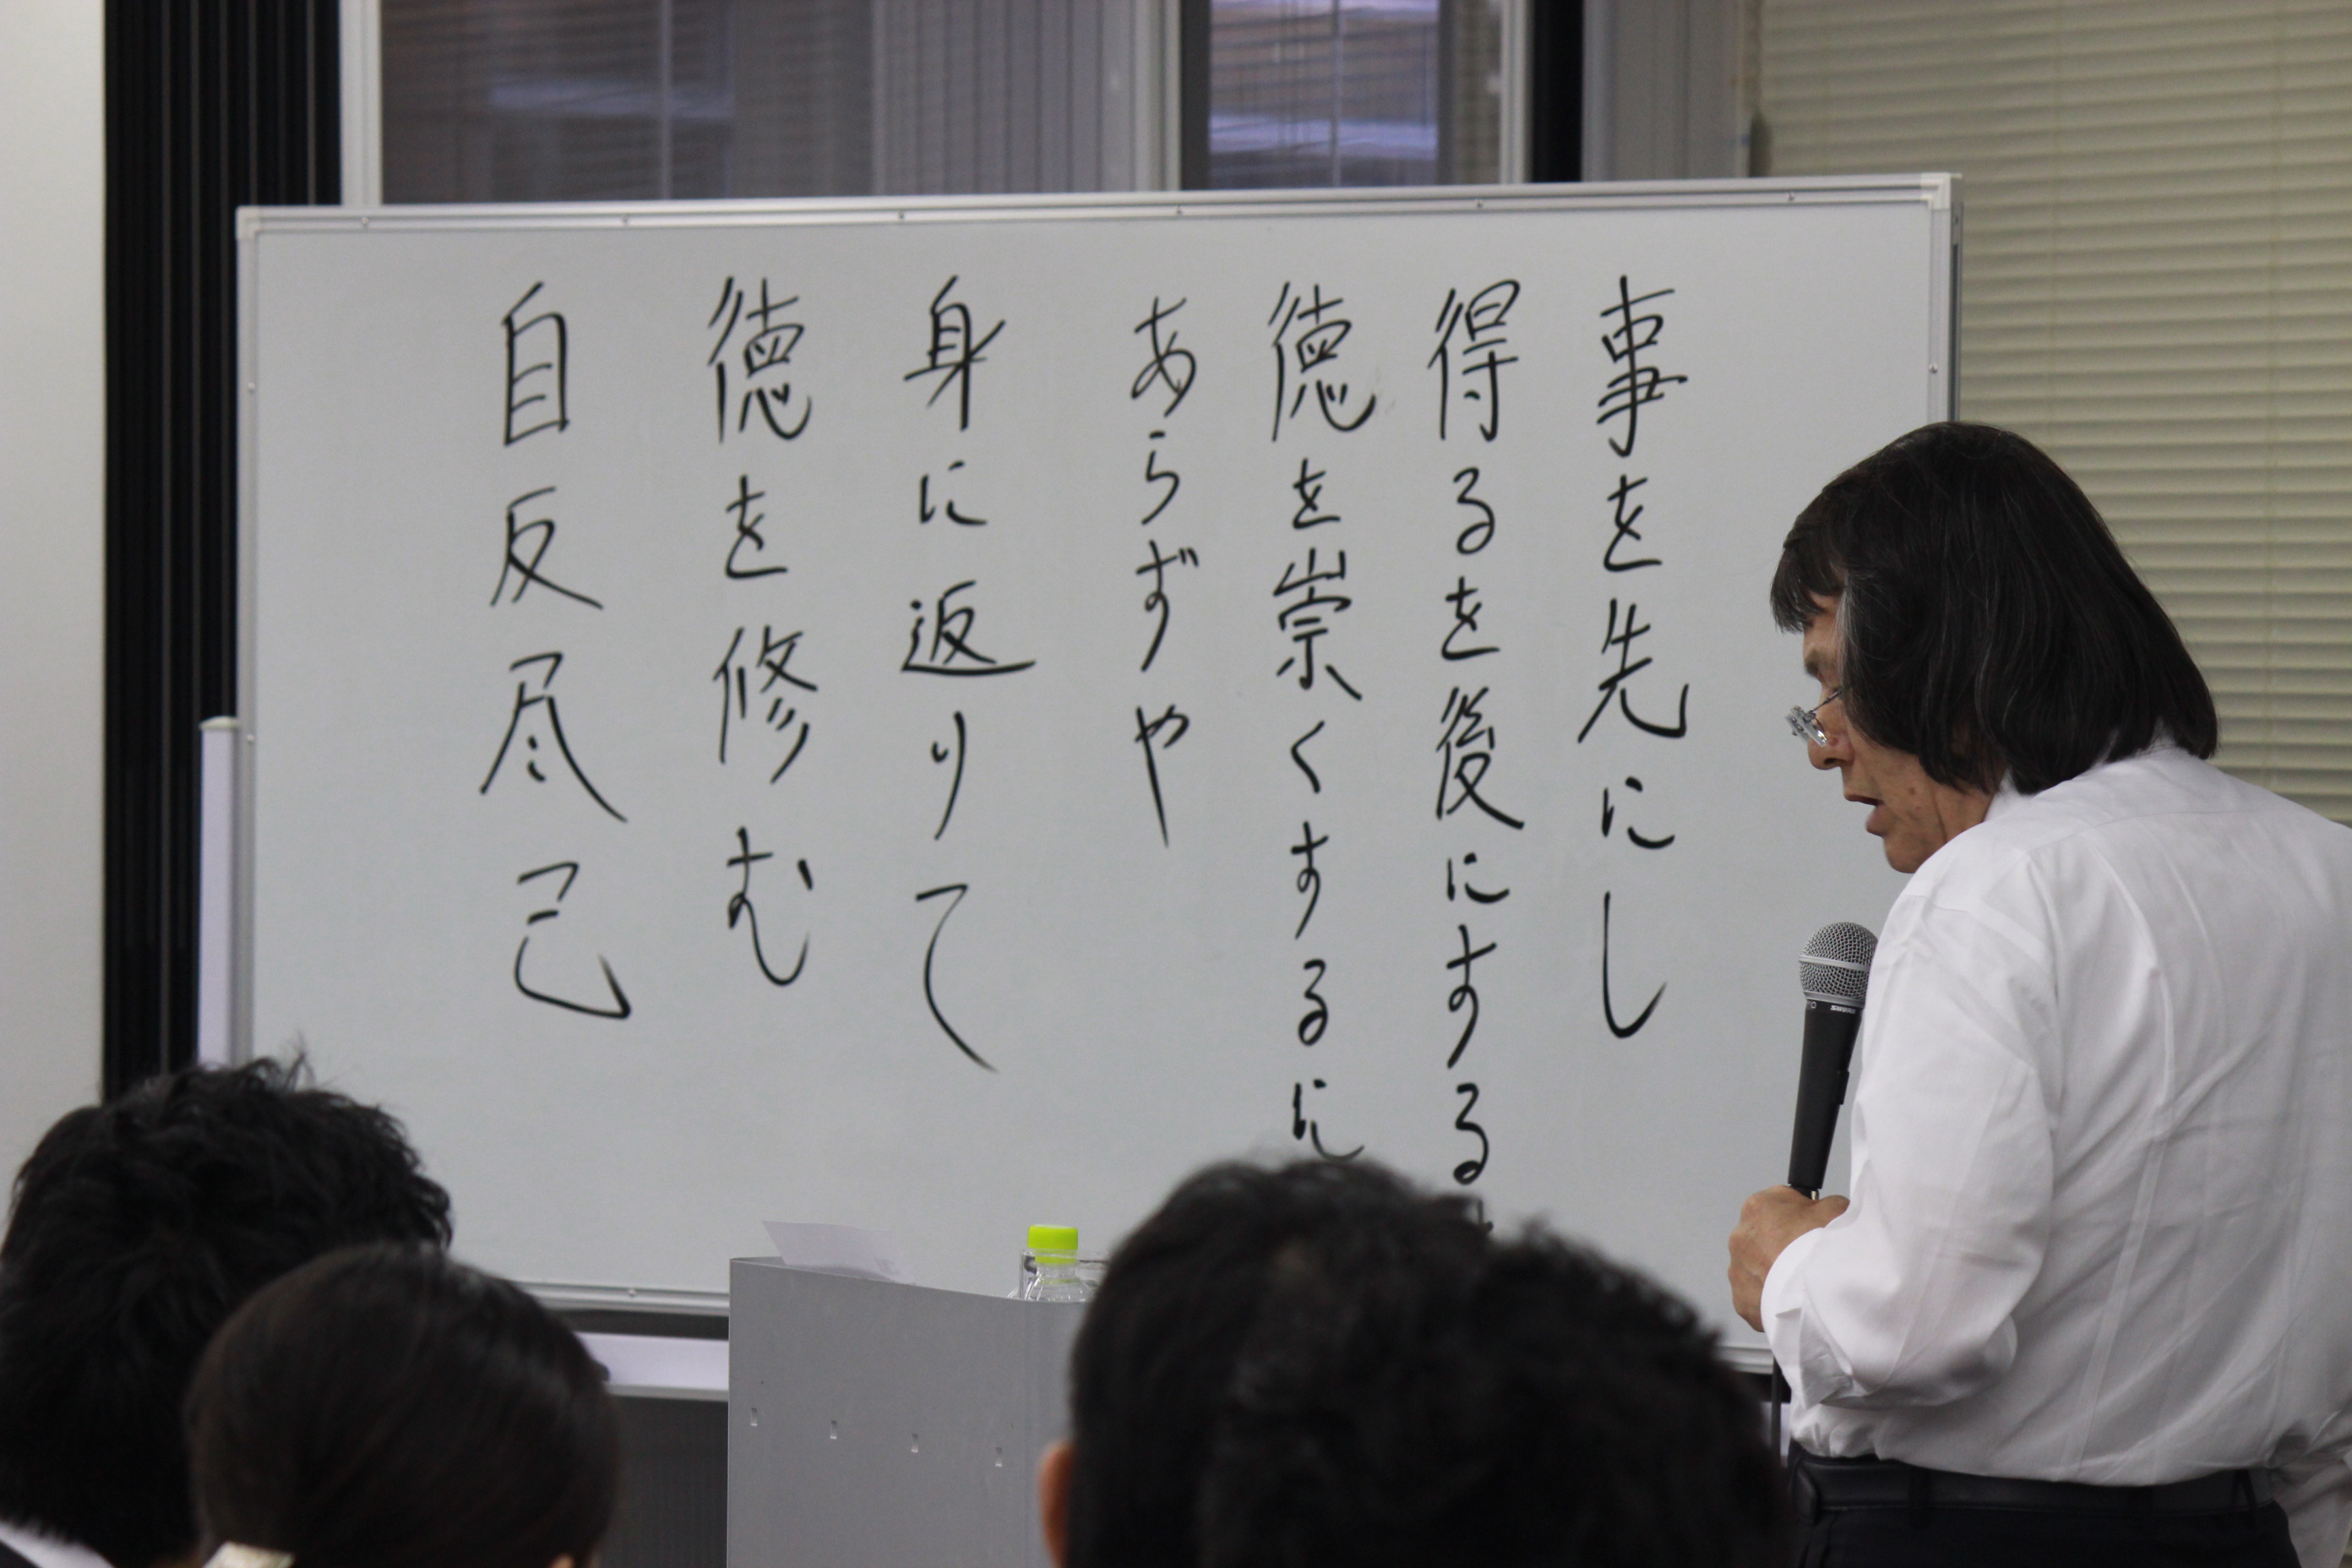 事を先にし
得るを後にする
徳を崇くするに
あらずや
身に返りて
徳を修む
自反尽己
SHURE